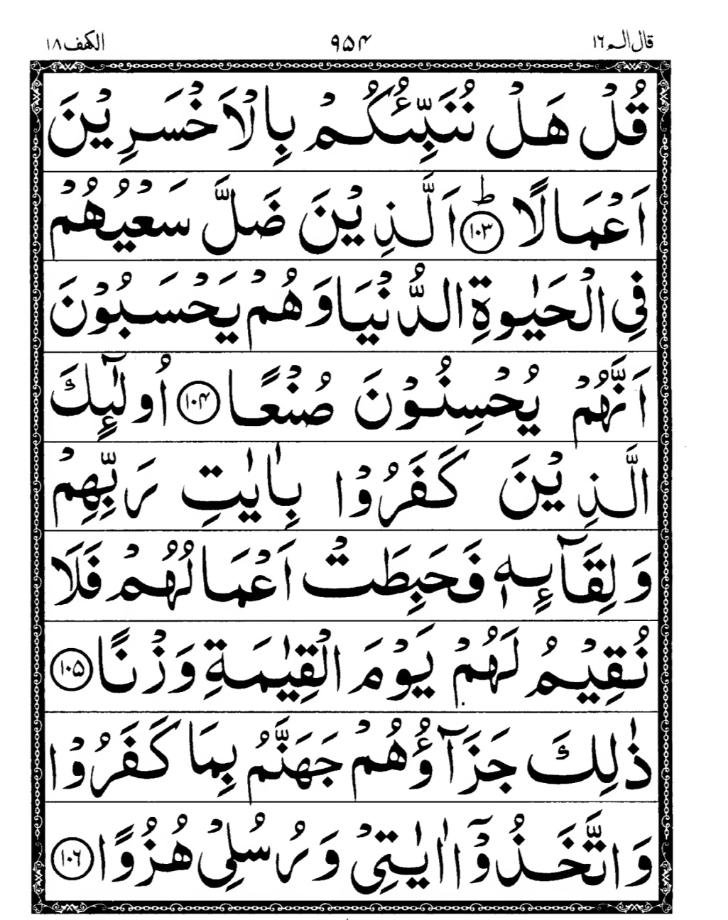 قال الم ١٦ ٩۵۴ الكهف ١٨
قُلْ هَلْ نُنَبِّئُكُمْ بِالْاَخْسَرِيْنَ
اَعْمَالًا ؕ ﴿۱۰۳﴾ اَلَّذِيْنَ ضَلَّ سَعْيُهُمْ
فِي الْحَيٰوةِ الدُّنْيَا وَهُمْ يَحْسَبُوْنَ
اَنَّهُمْ يُحْسِنُوْنَ صُنْعًا ﴿۱۰۴﴾ اُولٰٓئِكَ
الَّذِيْنَ كَفَرُوْا بِاٰيٰتِ رَبِّهِمْ
وَلِقَآئِهٖ فَحَبِطَتْ اَعْمَالُهُمْ فَلَا
نُقِيْمُ لَهُمْ يَوْمَ الْقِيٰمَةِ وَزْنًا ﴿۱۰۵﴾
ذٰلِكَ جَزَآؤُهُمْ جَهَنَّمُ بِمَا كَفَرُوْا
وَاتَّخَذُوْٓا اٰيٰتِيْ وَرُسُلِيْ هُزُوًا ﴿۱۰۶﴾